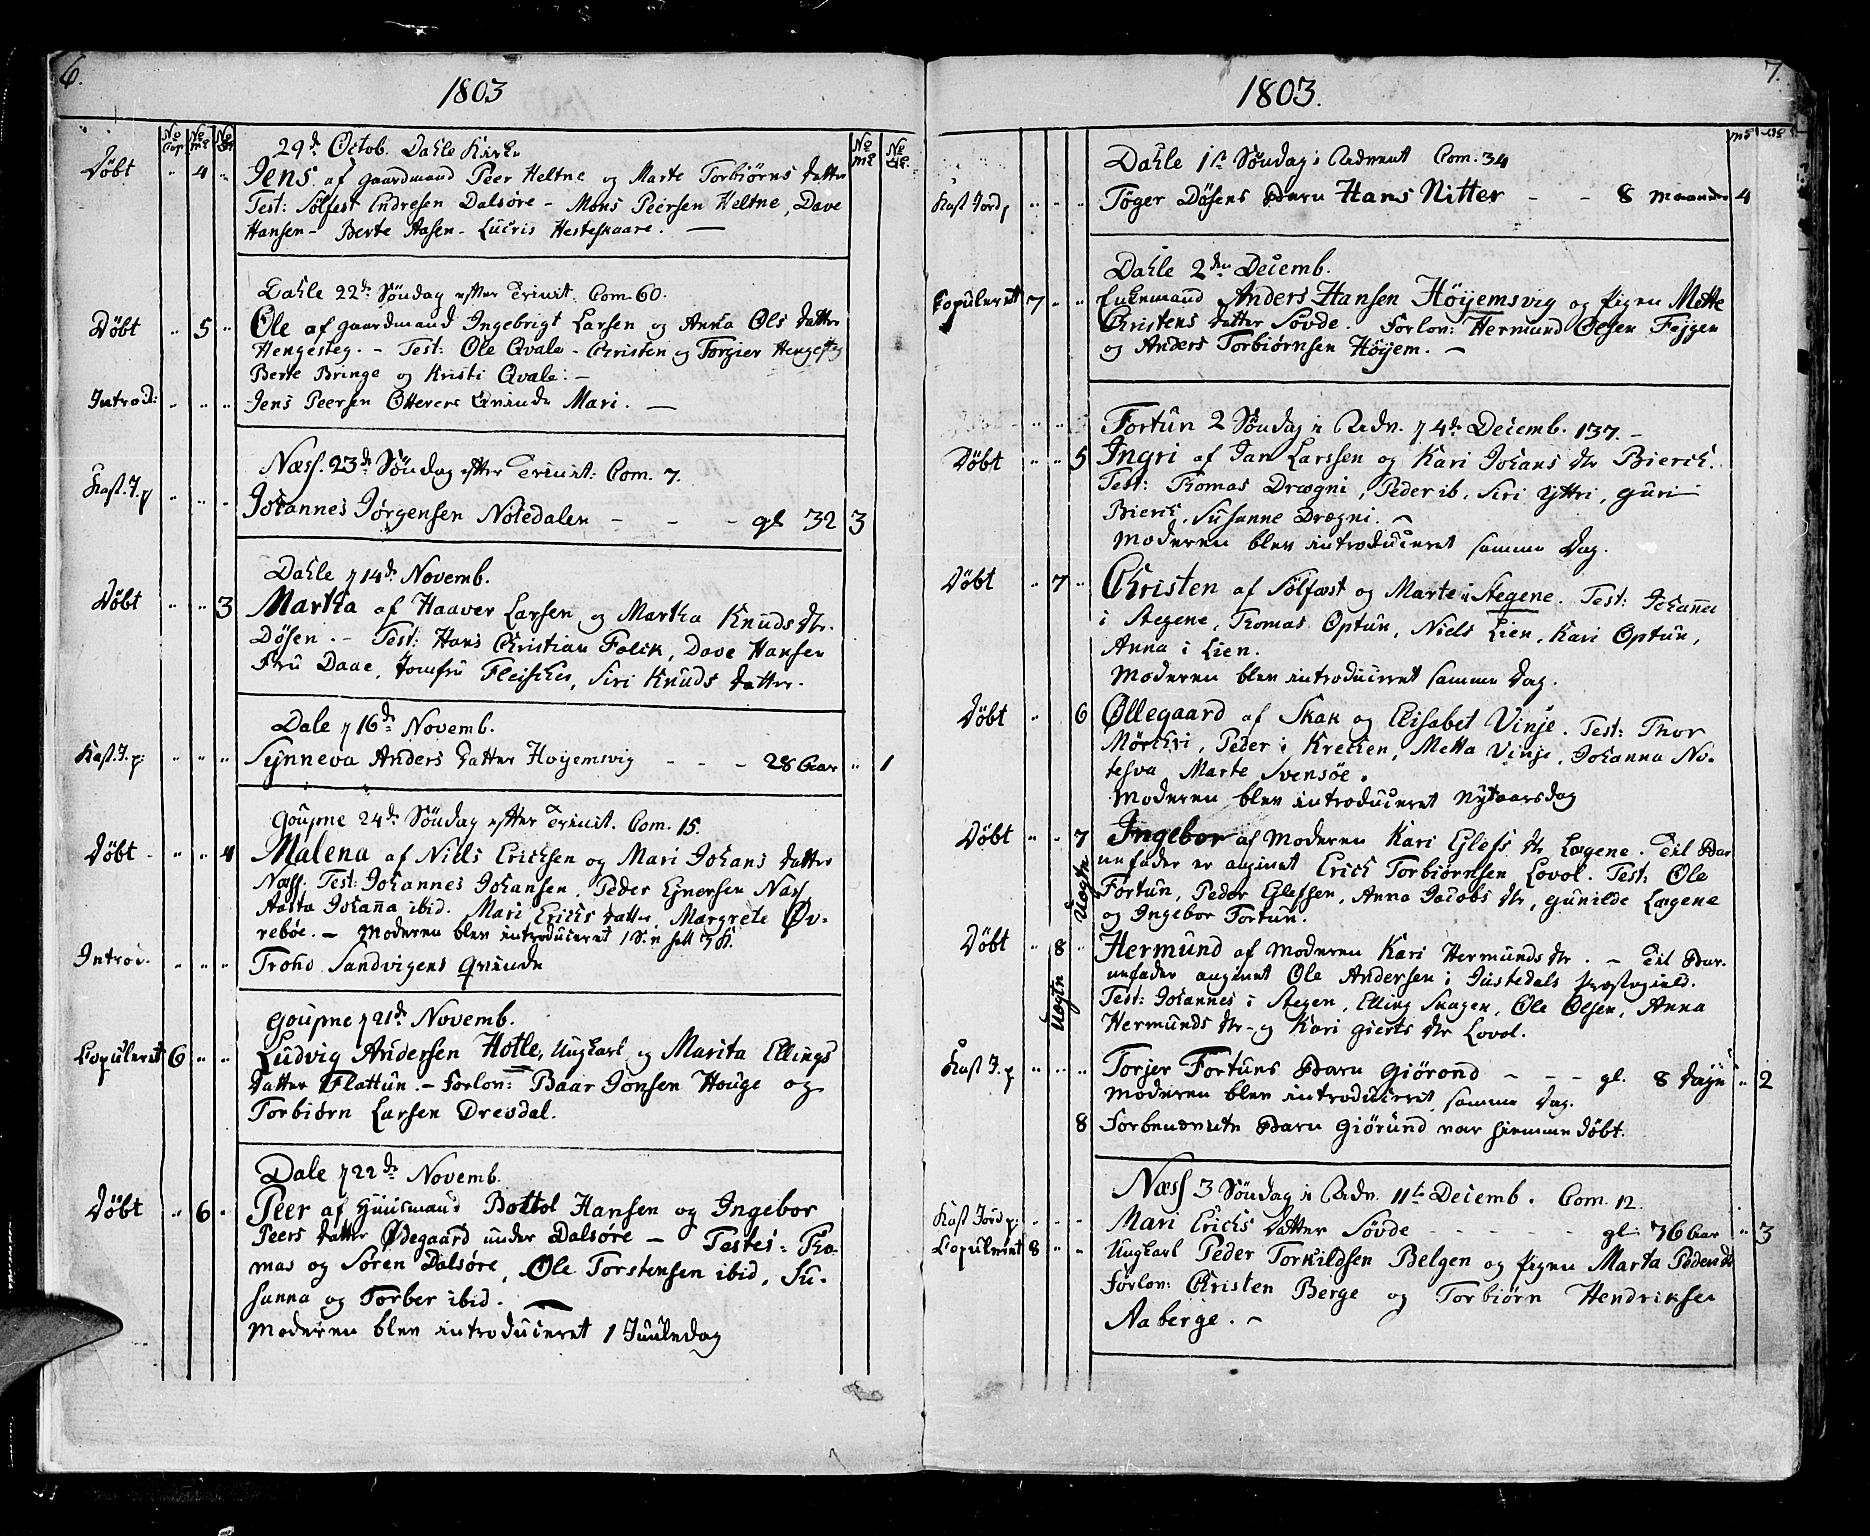 6.
1803
No Cop No me No
No me No
29de Octob. Dahle Kirke
Døbt " 4 " Jens af gaardmand Peer Heltne og Marte Torbiørns datter
Test: Sølfest Endresen Dalsøre - Mons Peersen Heltne, Dave
Hansen - Berte Aasen - Lucris Hesteskaare. —
Dahle 22de Söndag efter Trinit. Com. 60.
Døbt " 5 " Ole af gaardmand Ingebrigt Larsen og Anna Ols datter
Hengesteg. - Test: Ole Qvale - Christen og Torgier Hengesteg
Berte Bringe og Kristi Qvale. -
Introd: " " " Jens Peersen Otterers Qvinde Mari. —
Næss. 23de Söndag efter Trinit: Com. 7.
Kast. J. p " " " Johannes Jørgensen Notedalen - - - gl 32 3
Dahle 14de Novemb.
Døbt " " 3 Martha af Haaver Larsen og Martha Knuds dtr.
Døsen. - Test: Hans Christian Falck, Dave Hansen
Fru Daae, Jomfru Fleischer, Siri Knuds datter.
Dale 16de Novemb.
Kast. J. p: " " " Synneva Anders datter Hoyemsvig - - - 28 Aar " 1
Goupne 24de Söndag efter Trinit. Com. 15.
Døbt - " " 4 Malena af Niels Ericksen og Mari Johans datter
Næss. Test: Johannes Johansen, Peder Ejnersen Næss
Aasta Johanna ibid. Mari Ericks datter, Margrete Øv-
rebøe. - Moderen blev introduceret 1 S. i
Introd. " " " Trond Sandvigens Qvinde
Goupne 21de Novemb.
Copuleret 6 " " Ludvig Andersen Hotle, Ungkarl og Marita Ellings
datter Flattun. - Forlov: Baar Jonsen Houge og
Torbiørn Larsen Dresdal.
Dale 22de Novemb.
Døbt " 6 " Peer af Huusmand Bottol Hansen og Ingebor
Peers datter Ødegaard under Dalsøre - Testes: Tho-
mas og Søren Dalsøre, Ole Torstensen ibid, Su-
sanna og Torber ibid.
Moderen blev introduceret 1 Juuledag
7.
1803.
Dahle 1ste Söndag i Advent Com. 34
Kast Jord p " " " Tøger Døsens Barn Hans Nitter - - 8 Maaneder 4
Dahle 2den Decemb.
Copuleret 7 " " Enkemand Anders Hansen Höyemsvig og Pigen Mette
Christens datter Sövde. Forlov: Hermund Olsen Fejgen
og Anders Torbiørnsen Höyem. -
Fortun 2 Söndag i Adv. 4de Decemb. 137. -
Døbt " " 5 Ingri af Jan Larssen og Kari Johans dtr Bierck.
Test: Thomas Drægni, Peder ib, Siri Yttri, Guri
Bierck, Susanne Drægni.
Moderen blev introduceret samme Dag.
Døbt " 7 " Christen af Sölfæst og Marte i Stegene. Test: Johannes
i Stegene, Thomas Optun, Niels Lien, Kari Optun,
Anna i Lien.
Moderen blev introduceret samme Dag.
Døbt " 6 Øllegaard af Skak og Elisabet Vinje. Test: Thor
Mörchri, Peder i Krecken, Metta Vinje, Johanna No-
tesva Marte Svensøe.
Moderen blev introduceret Nytaarsdag
Døbt " " 7 Uægte Ingebor af Moderen Kari Glefs dtr Lægene. Til Bar-
nefader er anginet Erich Torbiörnsen Lovol. Test: Ole
Fortun, Peder Glefssen, Anna Jacobs dtr, Gunilde Lægene
og Ingebor Fortun.
Døbt " 8 " Uægte Hermund af Moderen Kari Hermunds dtr. - Til Bar-
nefader anginet Ole Andersen i Justedals Præstegield.
Test: Johannes i Stegen, Elling Skagen, Ole Olsen, Anna
Hermunds dtr - og Kari Gierts dtr Lovol.
Kast J. p " " " Torjer Fortuns Barn Giörond - - - gl. 8 Dage " 2
Moderen blev introduceret samme Dag.
8 Forbenevnte Barn Giörund var hiemme Døbt.
Næss 3 Söndag i Adv. 11te Decemb. Com. 12.
Kast Jord p: " " " Mari Erichs datter Sövde - - - - gl. 76 Aar " 3
Copuleret 8 " " Ungkarl Peder Torkildsen Belgen og Pigen Marta Peders dtr
Forlov: Christen Berge og Torbiørn Hendriksen
Aaberge. -